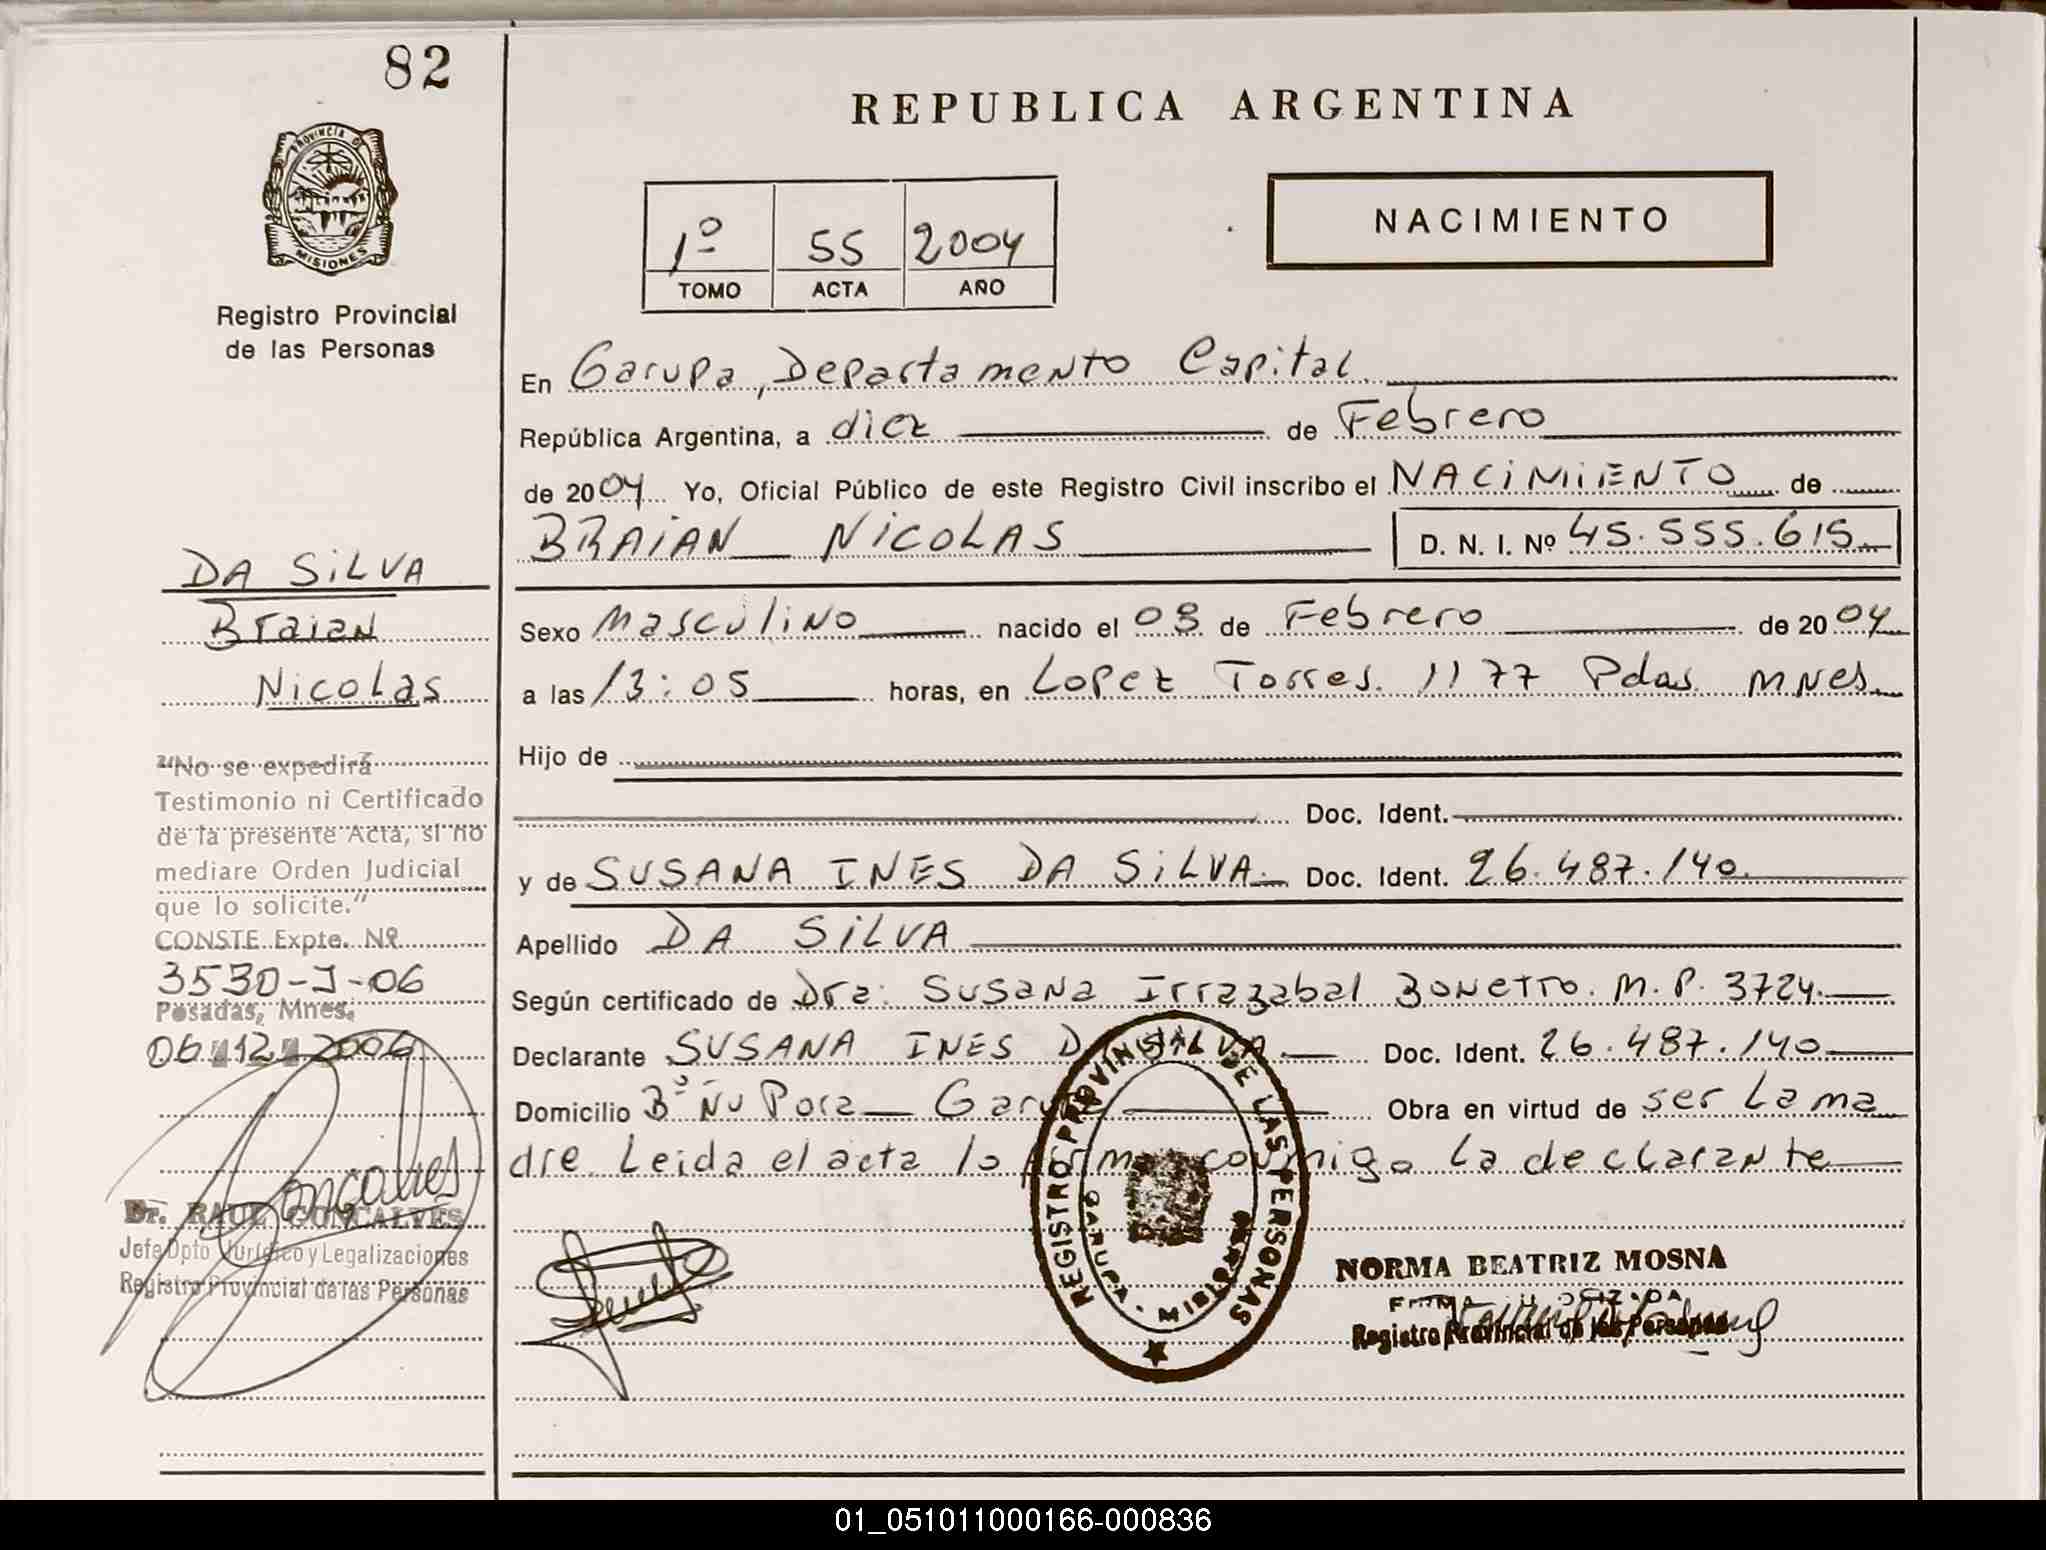 82
PROVINCIA DE
MISIONES
Registro Provincial
de las Personas
DA SiLVA
Braian
Nicolas
"No se expedirá
Testimonio ni Certificado
de la presente Acta, si no
mediare Orden Judicial
que lo solicite."
CONSTE Expte. Nº
3530-J-06
Posadas, Mnes.
06 12 2006
Gonçalves
Dr. RAUL GONCALVES
Jefe Dpto Jurídico y Legalizaciones
Registro Provincial de las Personas
REPUBLICA ARGENTINA
1º 55 2004
TOMO ACTA AÑO
NACIMIENTO
En Garupa, Departamento Capital
República Argentina, a diez de Febrero
de 2004 Yo, Oficial Público de este Registro Civil inscribo el NACiMiENTO de
BRAiAN NiCOLAS D. N. I. Nº 45.555.615
Sexo masculino nacido el 03 de Febrero de 2004
a las 13:05 horas, en Lopez Torres 1177 Pdas. mnes
Hijo de
Doc. Ident.
y de SUSANA INES DA SiLVA Doc. Ident. 26.487.140
Apellido DA SiLVA
Según certificado de Dra: Susana Irrazabal Bonetto. M.P. 3724.
Declarante SUSANA INES DA SiLVA Doc. Ident. 26.487.140
Domicilio Bº Ñu Pora Garupa Obra en virtud de ser la ma
dre Leida el acta lo firma conmigo la declarante
REGISTRO PROVINCIAL DE LAS PERSONAS
GARUPA - MISIONES
NORMA BEATRIZ MOSNA
FIRMA AUTORIZADA
Registro Provincial de las Personas
01_051011000166-000836